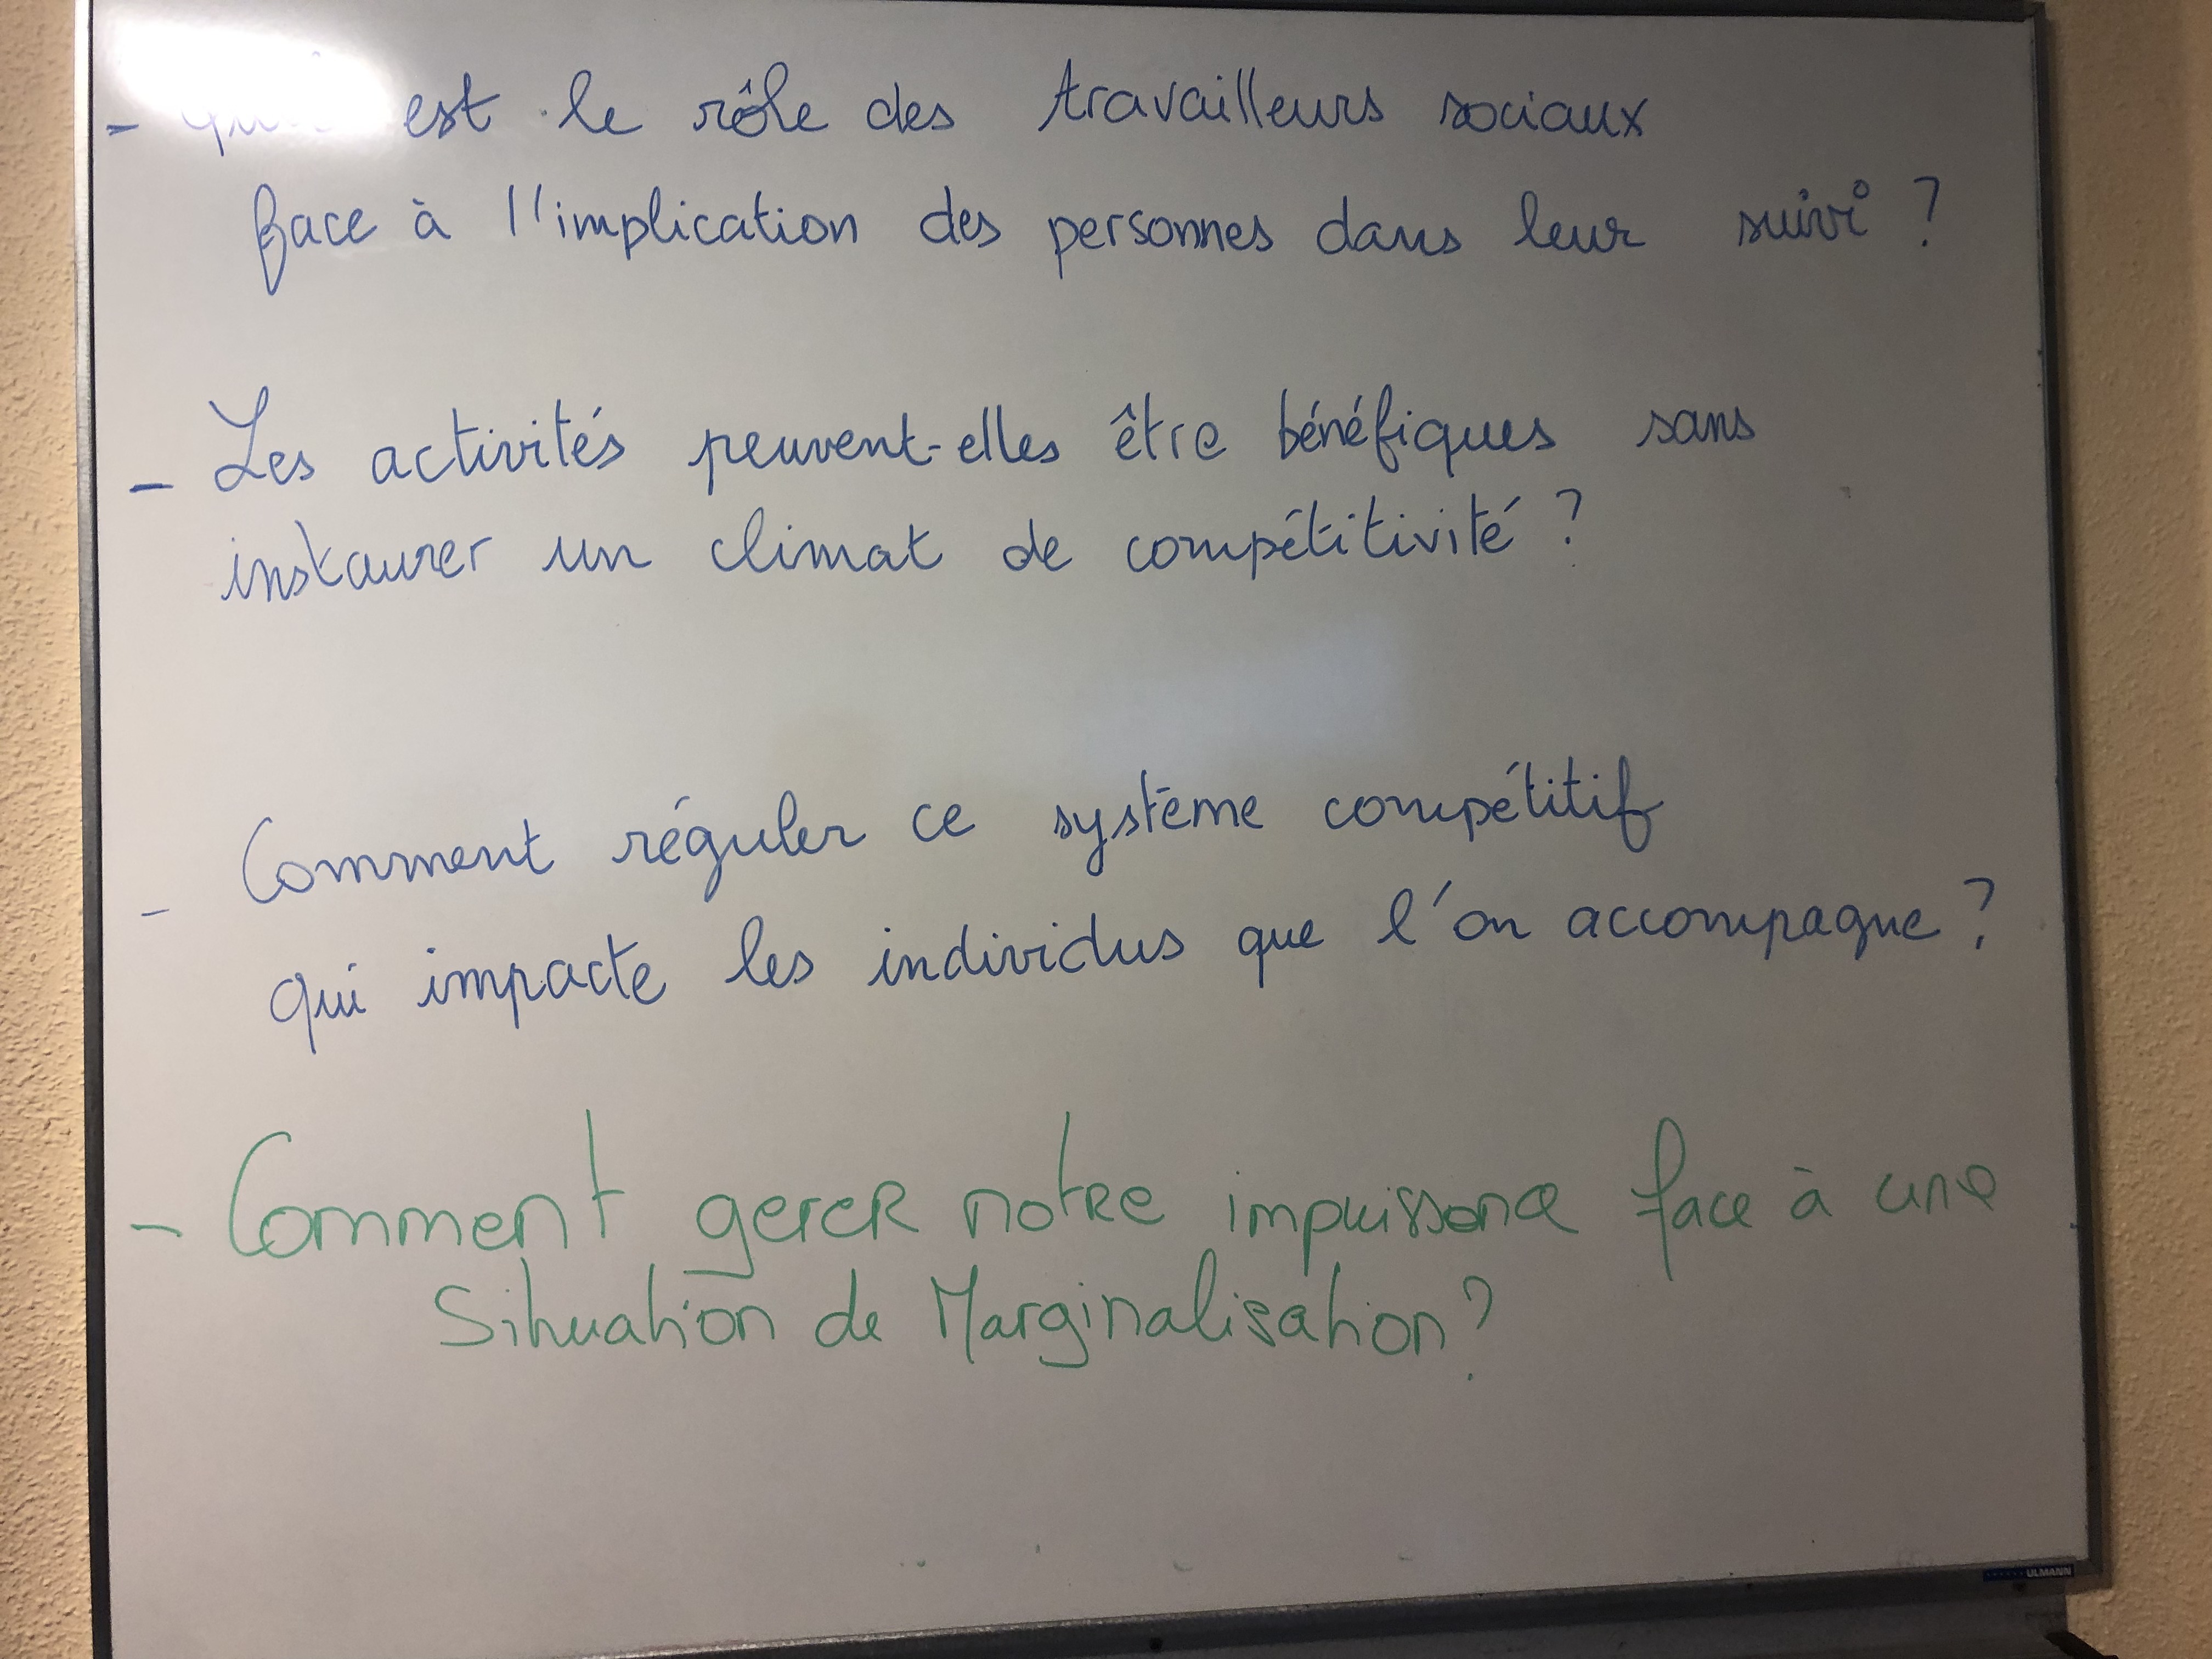 - est le rôle des travailleurs sociaux
face à l'implication des personnes dans leur suivi ?
- Les activités peuvent-elles être bénéfiques sans
instaurer un climat de compétitivité ?
- Comment réguler ce système compétitif
qui impacte les individus que l'on accompagne ?
- Comment gerer notre impuissance face à une
Situation de Marginalisation ?
ULMANN